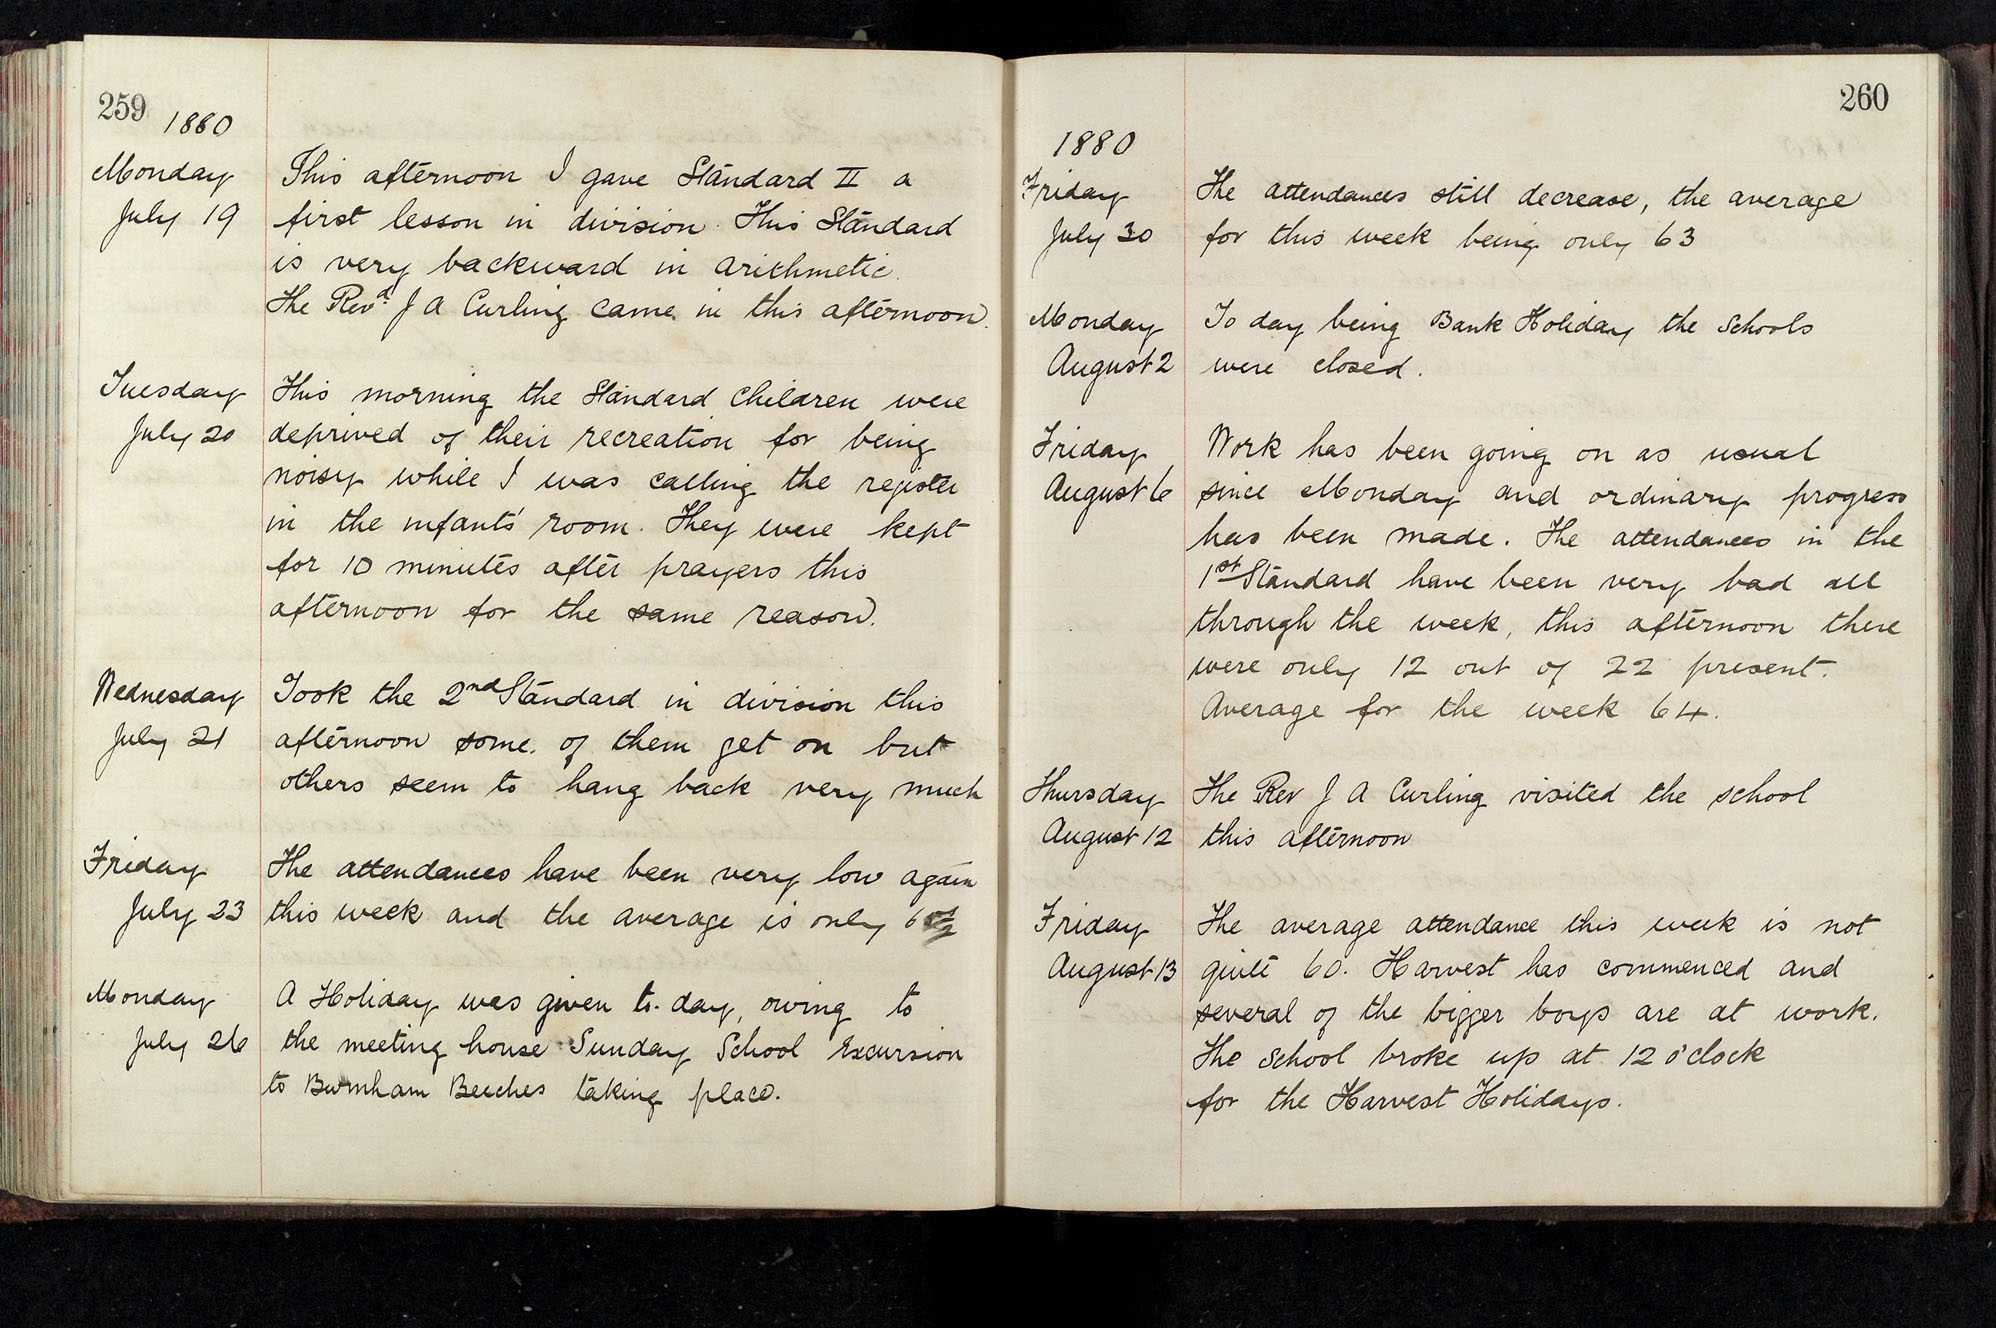 259
1880
Monday
July 19
This afternoon I gave Standard II a
first lesson in division. This Standard
is very backward in arithmetic.
The Revd. J A Curling came in this afternoon.
Tuesday
July 20
This morning the Standard children were
deprived of their recreation for being
noisy while I was calling the register
in the infants' room. They were kept
for 10 minutes after prayers this
afternoon for the same reason.
Wednesday
July 21
Took the 2nd Standard in division this
afternoon some of them get on but
others seem to hang back very much
Friday
July 23
The attendances have been very low again
this week and the average is only
Monday
July 26
A Holiday was given to-day, owing to
the meeting house Sunday School Excursion
to Burnham Beeches taking place.
260
1880
Friday
July 30
The attendances still decrease, the average
for this week being only 63
Monday
August 2
To day being Bank Holiday the Schools
were closed.
Friday
August 6
Work has been going on as usual
since Monday and ordinary progress
has been made. The attendances in the
1st Standard have been very bad all
through the week, this afternoon there
were only 12 out of 22 present.
Average for the week 64.
Thursday
August 12
The Rev J A Curling visited the school
this afternoon
Friday
August 13
The average attendance this week is not
quite 60. Harvest has commenced and
several of the bigger boys are at work.
The School broke up at 12 o'clock
for the Harvest Holidays.